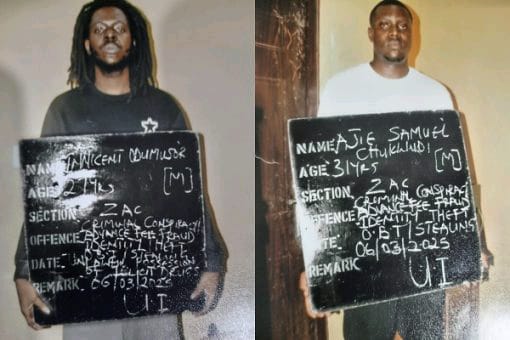 NAME INNICENT ODUMUSOR
AGE 29 YRS [M]
SECTION ZAC
CRIMINAL CONSPIRACY/
OFFENCE ADVANCE FEE FRAUD
IDENTITY THEFT
STEALING/
DATE IN
OF ILLICIT DRUGS
REMARK 06/03/2025
UI
NAME AJIE SAMUEL
CHUKWUDI
AGE 31 YRS [M]
SECTION ZAC
CRIMINAL CONSPIRACY
OFFENCE ADVANCE FEE FRAUD
IDENTITY THEFT
O.B.T/STEALING
TE 06/03/2025
REMARK
UI